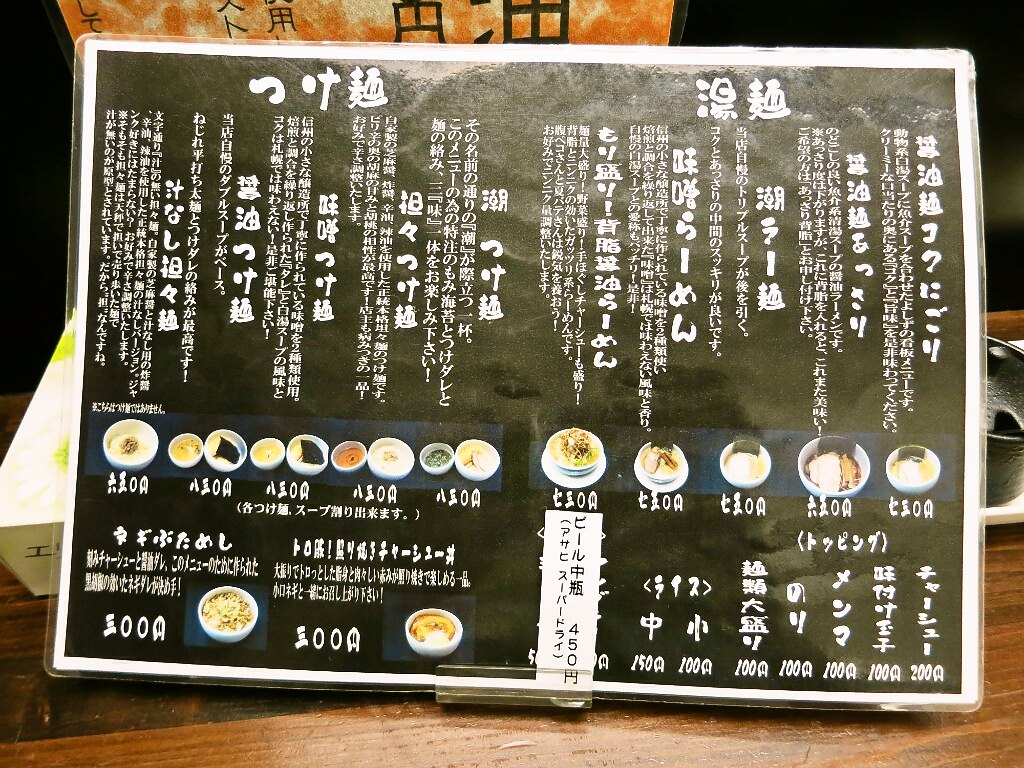 湯麺
醤油麺コクにごり
動物系白湯スープに魚介スープを合わせたよしずの看板メニューです。
クリーミーな口当たりの奥にある「コク」と「旨味」を是非味わってください。
醤油麺あっさり
のどごしの良い魚介系清湯スープの醤油ラーメンです。
※あっさり度は下がりますが、これに背脂を入れると、これまた美味い!
ご希望の方は「あっさり背脂」とお申し付け下さい。
潮ラー麺
当店自慢のトリプルスープが後を引く。
コクとあっさりの中間のスッキリが良いです。
味噌らーめん
信州の小さな醸造所で丁寧に作られている味噌を2種類使い
焙煎と調合を繰り返して出来た「味噌」は札幌では味わえない風味と香り。
自慢の白湯スープとの愛称もバッチリ!是非!
もり盛り!背脂醤油らーめん
麺量大盛り!野菜盛り!手ほぐしチャーシューも盛り!
背脂とニンニクの効いたガッツリ系らーめんです。
腹ペコさんと夏バテさんは鋭気を養おう!
お好みでニンニク量調整いたします。
七三0円
六五0円
七五0円
七五0円
七三0円
つけ麺
潮つけ麺
その名前の通りの『潮』が際立つ一杯。
このメニューの為の特注のもみ海苔とつけダレと
麺の絡み、三『味』一体をお楽しみ下さい!
担々つけ麺
自家製の芝麻醤、炸醤、辛油、辣油を使用した正統本格坦々麺のつけ麺です。
ピリ辛の奥の胡麻の甘みと胡桃の相性が最高です!店主も病みつきの一品!
お好みで辛さ調整いたします。
味噌つけ麺
信州の小さな醸造所で丁寧に作られている味噌を2種類使用。
焙煎と調合を繰り返し作られた「タレ」と白湯スープの風味と
コクは札幌では味わえない!是非ご堪能下さい!
醤油つけ麺
当店自慢のダブルスープがベース。
ねじれ平打ち太麺とつけダレの絡みが最高です!
汁なし担々麺
文字通り「汁」の無い坦々麺。自家製の芝麻醤と汁なし用の炸醤
、辛油、辣油を使用した正統本格担々麺の汁なしバージョン。ジャ
ンク好きにはたまらない?!お好みで辛さ調整いたします。
※そもそも担々麺は天秤で担いで売り歩いた麺で
汁が無いのが原型とされています。だから、「担」なんですね。
※こちらはつけ麺ではありません。
八五0円
八五0円
八三0円
八三0円
六五0円
(各つけ麺、スープ割り出来ます。)
トロ豚!照り焼きチャーシュー丼
大振りでトロっとした脂身と肉々しい赤みが照り焼きで楽しめる一品。
小口ネギと一緒にお召し上がり下さい!
三00円
ネギぶためし
刻みチャーシューと醤油ダレ、このメニューのために作られた
黒胡椒の効いたネギダレが決め手!
三00円
〈トッピング〉
チャーシュー 200円
味付け玉子 100円
メンマ 100円
のり 100円
麺類大盛り 100円
〈ライス〉
小 100円
中 150円
ビール中瓶 450円
(アサヒ スーパードライ)